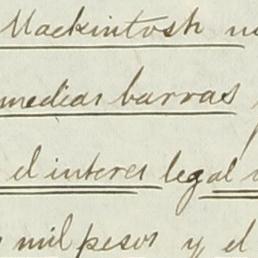 Mackintosh
medias barras
el interes legal
mil pesos y el